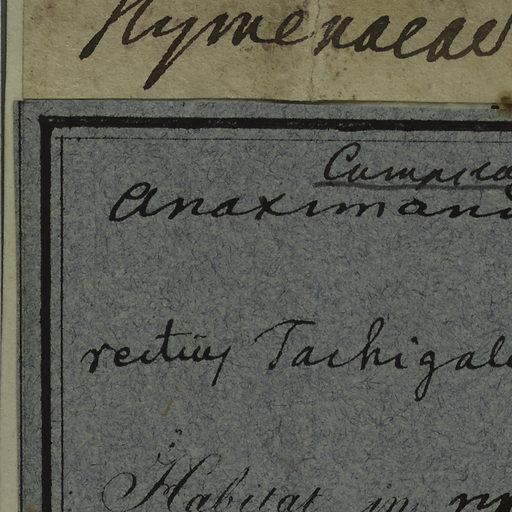 Hymenaeae
Campsia
Anaximan
rectius Tachigal
Habitat in